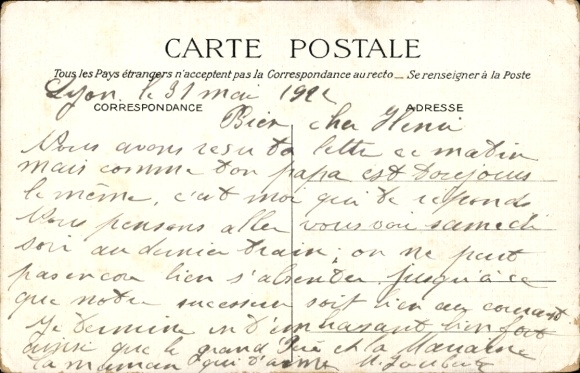 CARTE POSTALE
Tous les Pays étrangers n'acceptent pas la Correspondance au recto — Se renseigner à la Poste
Lyon le 31 mai
CORRESPONDANCE
ADRESSE
Bien cher Henri
Nous avons reçu ta lettre ce matin
mais comme ton papa est toujours
le même, c'est moi qui te réponds
Nous pensons aller vous voir samedi
soir au dernier train; on ne peut
pas encore bien s'absenter jusqu'à ce
que notre successeur soit bien au courant
Je termine en t'embrassant bien fort
ainsi que le grand Père et la Marraine
ta maman qui t'aime